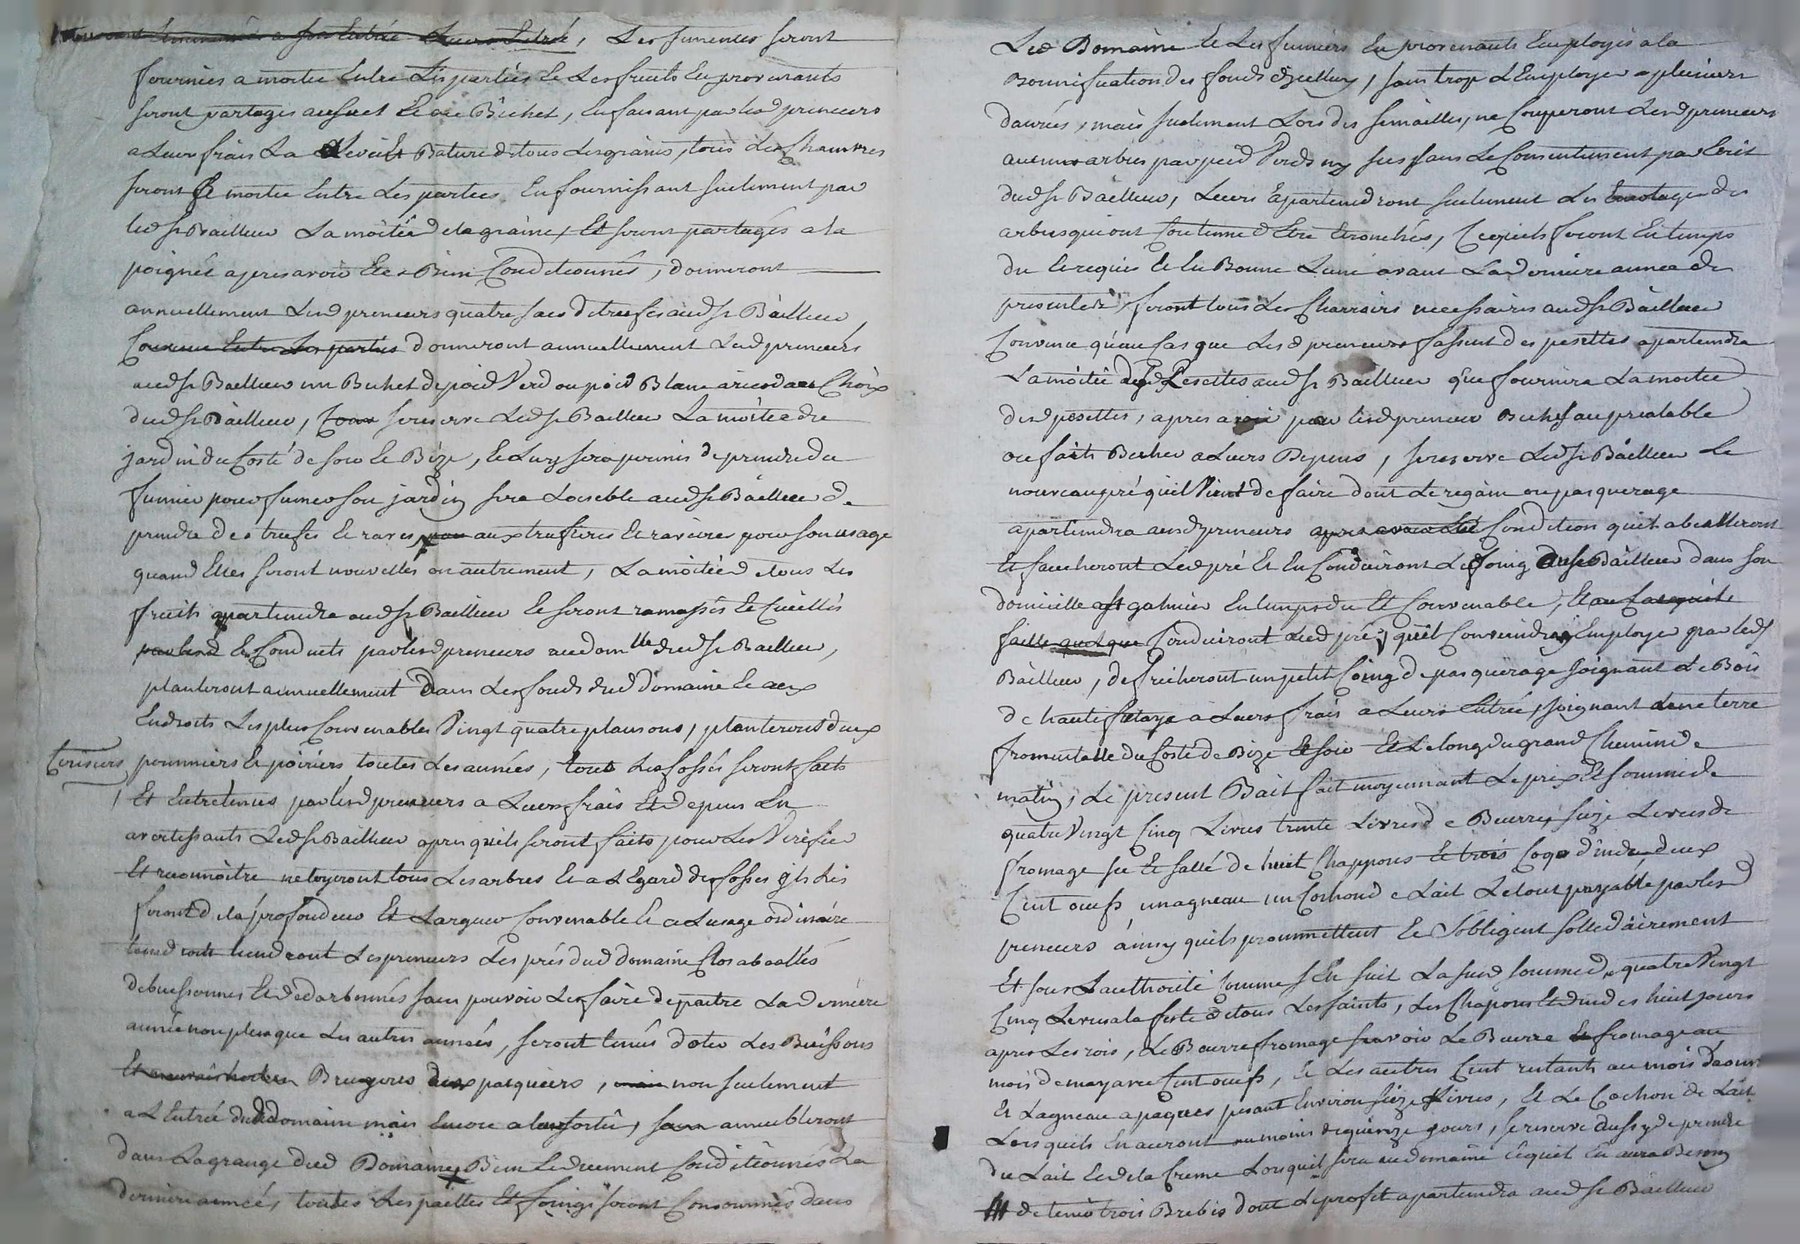 Les semences seront
fournies a moitié Entre Les parties Et Les fruits En provenants
seront partagés au sact Et au Bichet, En faisant par lesd preneurs
a Leurs frais La Bature de tous Les grains, tous Les Chanvres
seront a moitié Entre Les parties En fournissant seulement par
led sr Bailleur La moitiée de la graine, Et seront partagés a la
poignée apres avoir Eté Bien Conditionnés, donneront
annuellement Lesd preneurs quatre sacs de trufes aud sr Bailleur
Convenu Entre Les parties donneront annuellement Lesd preneurs
aud sr Bailleur un Bichet de poid Verd ou poid Blanc Choix
dud sr Bailleur, se reserve Led sr Bailleur La moitiée du
jardin du Costé de soir Et Bize, Et Luy sera permis de prendre du
fumier pour fumer son jardin sera Loisible aud sr Bailleur de
prendre des trufes Et raves aux trufieres Et ravieres pour son usage
quand Elles seront nouvelles ou autrement, La moitiée de tous Les
fruits apartiendra aud sr Bailleur Et seront ramassés Et Cueillis
par lesd Et Conduits par lesd preneurs au domlle dud sr Bailleur,
planteront annuellement dans Les fonds dud Domaine Et aux
Endroits Les plus Convenables Vingt quatre plansons, planteront deux
Cerisiers pommiers Et poiriers toutes Les années, tous Les fossés seront faits
Et Entretenus par lesd preneurs a Leurs frais Et depens En
avertissants Led sr Bailleur apres qu'ils seront faits pour Les Verifier
Et reconnoitre netoyeront tous Les arbres Et a L'Egard des fosses ils Les
feront de la profondeur Et Largeur Convenable Et a L'usage ordinaire
tiendront Les preneurs Les prés dud domaine Clos
debuissonnés Et sans pouvoir Les faire depaitre La derniere
année non plus que Les autres années, seront tenus d'oter Les Buissons
Bruyeres des pasquiers, non seulement
a L'Entrée dud domaine mais Encore a la sortie,
dans La grange dud Domaine Bien Et deuement Conditionnés La
derniere année, toutes Les pailles Et foings seront Consommés dans
Led Domaine Et Les fumiers En provenants Employés a la
Bonnifications des fonds d'icelluy, sans trop L'Employer a plusieurs
danrées, mais seulement Lors des semailles, ne Couperont Lesd preneurs
aucuns arbres par pied Verds ny secs sans Le Consentement par Ecrit
dud sr Bailleur, Leurs apartiendront seulement Les des
arbres qui ont Coutume d'Etre Etronchés, Lesquels seront En temps
du Et requis Et En Bonne Lune avant La derniere année du
present feront tous Les Charrois necessaires aud sr Bailleur
Convenu qu'au Cas que Lesd preneurs fassent des pesettes apartiendra
La moitié desd Pesettes aud sr Bailleur que fournira La moitié
desd pesettes, apres avoir par lesd preneurs Beché au prealable
ou faits Becher a Leurs Depens, se reserve Led sr Bailleur Le
nouveau pré qu'il Vient de faire dont Le regain ou pasquerage
apartiendra ausd preneurs Condition qu'ils
Et faucheront Led pré Et En Conduiront Le foing dud sr Bailleur dans son
domicille a st galmier En temps du Et Convenable, Et au Cas qu'il
faille quelque Conduiront aud pré, qu'il Conviendra y Employer par led sr
Bailleur, defricheront un petit Coing de pasquerage joignant Le Bois
de haute futaye a Leurs frais a Leurs Entrée, joignant La terre
fromentalle du Costé de Bize Et soir Et Le long du grand Chemin de
matin, Le present Bail fait moyennant Le prix Et somme de
quatre Vingt Cinq Livres trente Livres de Beurre, seize Livres de
fromage sec Et sallé de huit Chappons Et trois Coqs d'inde, deux
Cent oeufs, un agneau un Cochon de Lait Le tout payable par lesd
preneurs ainsy qu'ils promettent Et s'obligent sollidairement
Et sous L'authorité Comme s'En suit La susd somme de quatre Vingt
Cinq Livres a la feste de tous Les saints, Les Chapons Et dindes huit jours
apres Les rois, Le Beurre fromage sçavoir Le Beurre Et fromage au
mois de may avec Cent oeufs, Et Les autres Cent restants au mois d'aoust
Et L'agneau a paques pesant Environ seize Livres, Et Le Cochon de Lait
Lorsqu'ils En auront au moins de quinze jours, se reserve aussy de prendre
du Lait Et de la Creme Lorsqu'il sera au domaine Et qu'il En aura Besoing
de tenir trois Brebis dont Le profit apartiendra aud sr Bailleur